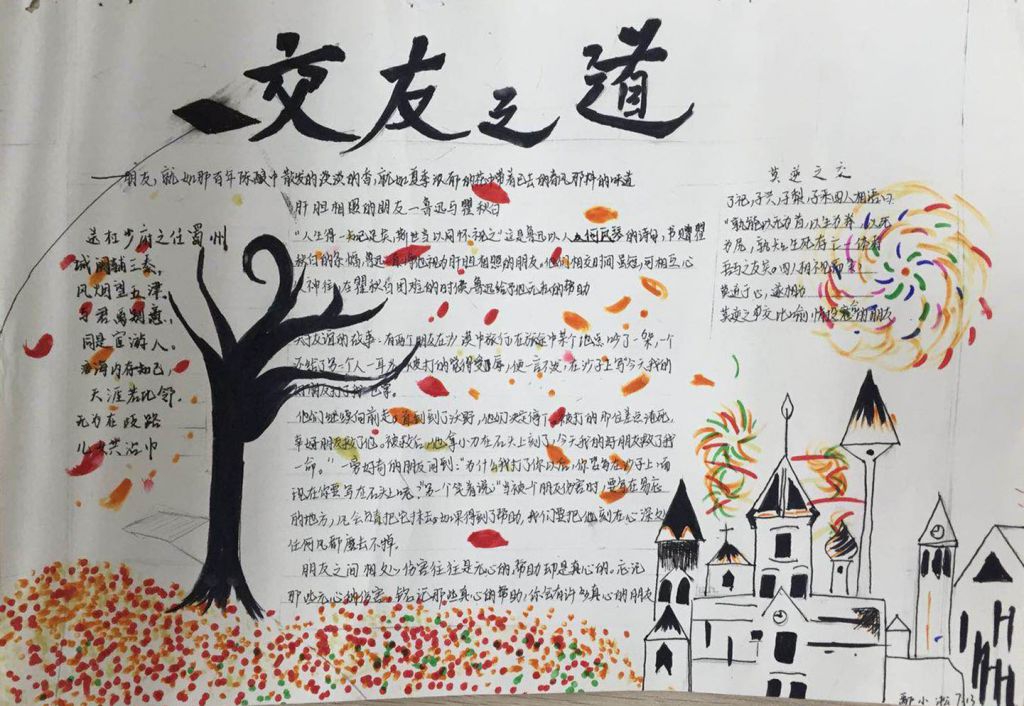 交友之道
朋友,就如那百年陈酿中散发的淡淡的香,就如夏季没有的花中带着已去的春风那样的味道
肝胆相照的朋友—鲁迅与瞿秋白
"人生得一知己足矣,斯世当以同怀视之"这是鲁迅以人何瓦琴的诗句,书赠瞿
秋白的条幅,鲁迅视为肝胆相照的朋友。他们相交时间虽短,可相互心
神往,在瞿秋白困难的时候,鲁迅给了他无私的帮助
关友谊的故事:有两个朋友在沙漠中旅行在旅途中某个地点吵了一架,一个
还给了另一个人一耳光,被打的觉得受辱,便一言不发,在沙子上写今天我的
好朋友打了我巴掌。
他们继续向前走,直到到了沃野,他们决定停下。被打的那位差点淹死
幸好朋友救了他。被救后,他拿小刀在石头上刻了,今天我的好朋友救了我
一命。"一旁好奇的朋友问到:"为什么我打了你以后,你要写在沙子上,而
现在你要写在石头上呢?"另一个笑着说:"当被个朋友伤害时,要写在易忘
的地方,风会负责把它抹去,如果得到了帮助,我们要把他刻在心深处
任何风都磨去不掉。
朋友之间相处,伤害往往是无心的,帮助却是真心的,忘记
那些无心的伤害,铭记那些真心的帮助,你会有许多真心的朋友
送杜少府之任蜀州
城阙辅三秦,
风烟望五津。
与君离别意,
同是宦游人。
海内存知己,
天涯若比邻。
无为在歧路
儿女共沾巾
莫逆之交
子祀,子兴,子犁,子来四人相语曰
"孰能以无为首,以生为脊,以死
为尻,孰知生死存亡一体者
吾与之友矣。四人相视而笑
莫逆于心,遂相为
莫逆之交比喻情投意合的朋友
小淞 7.13